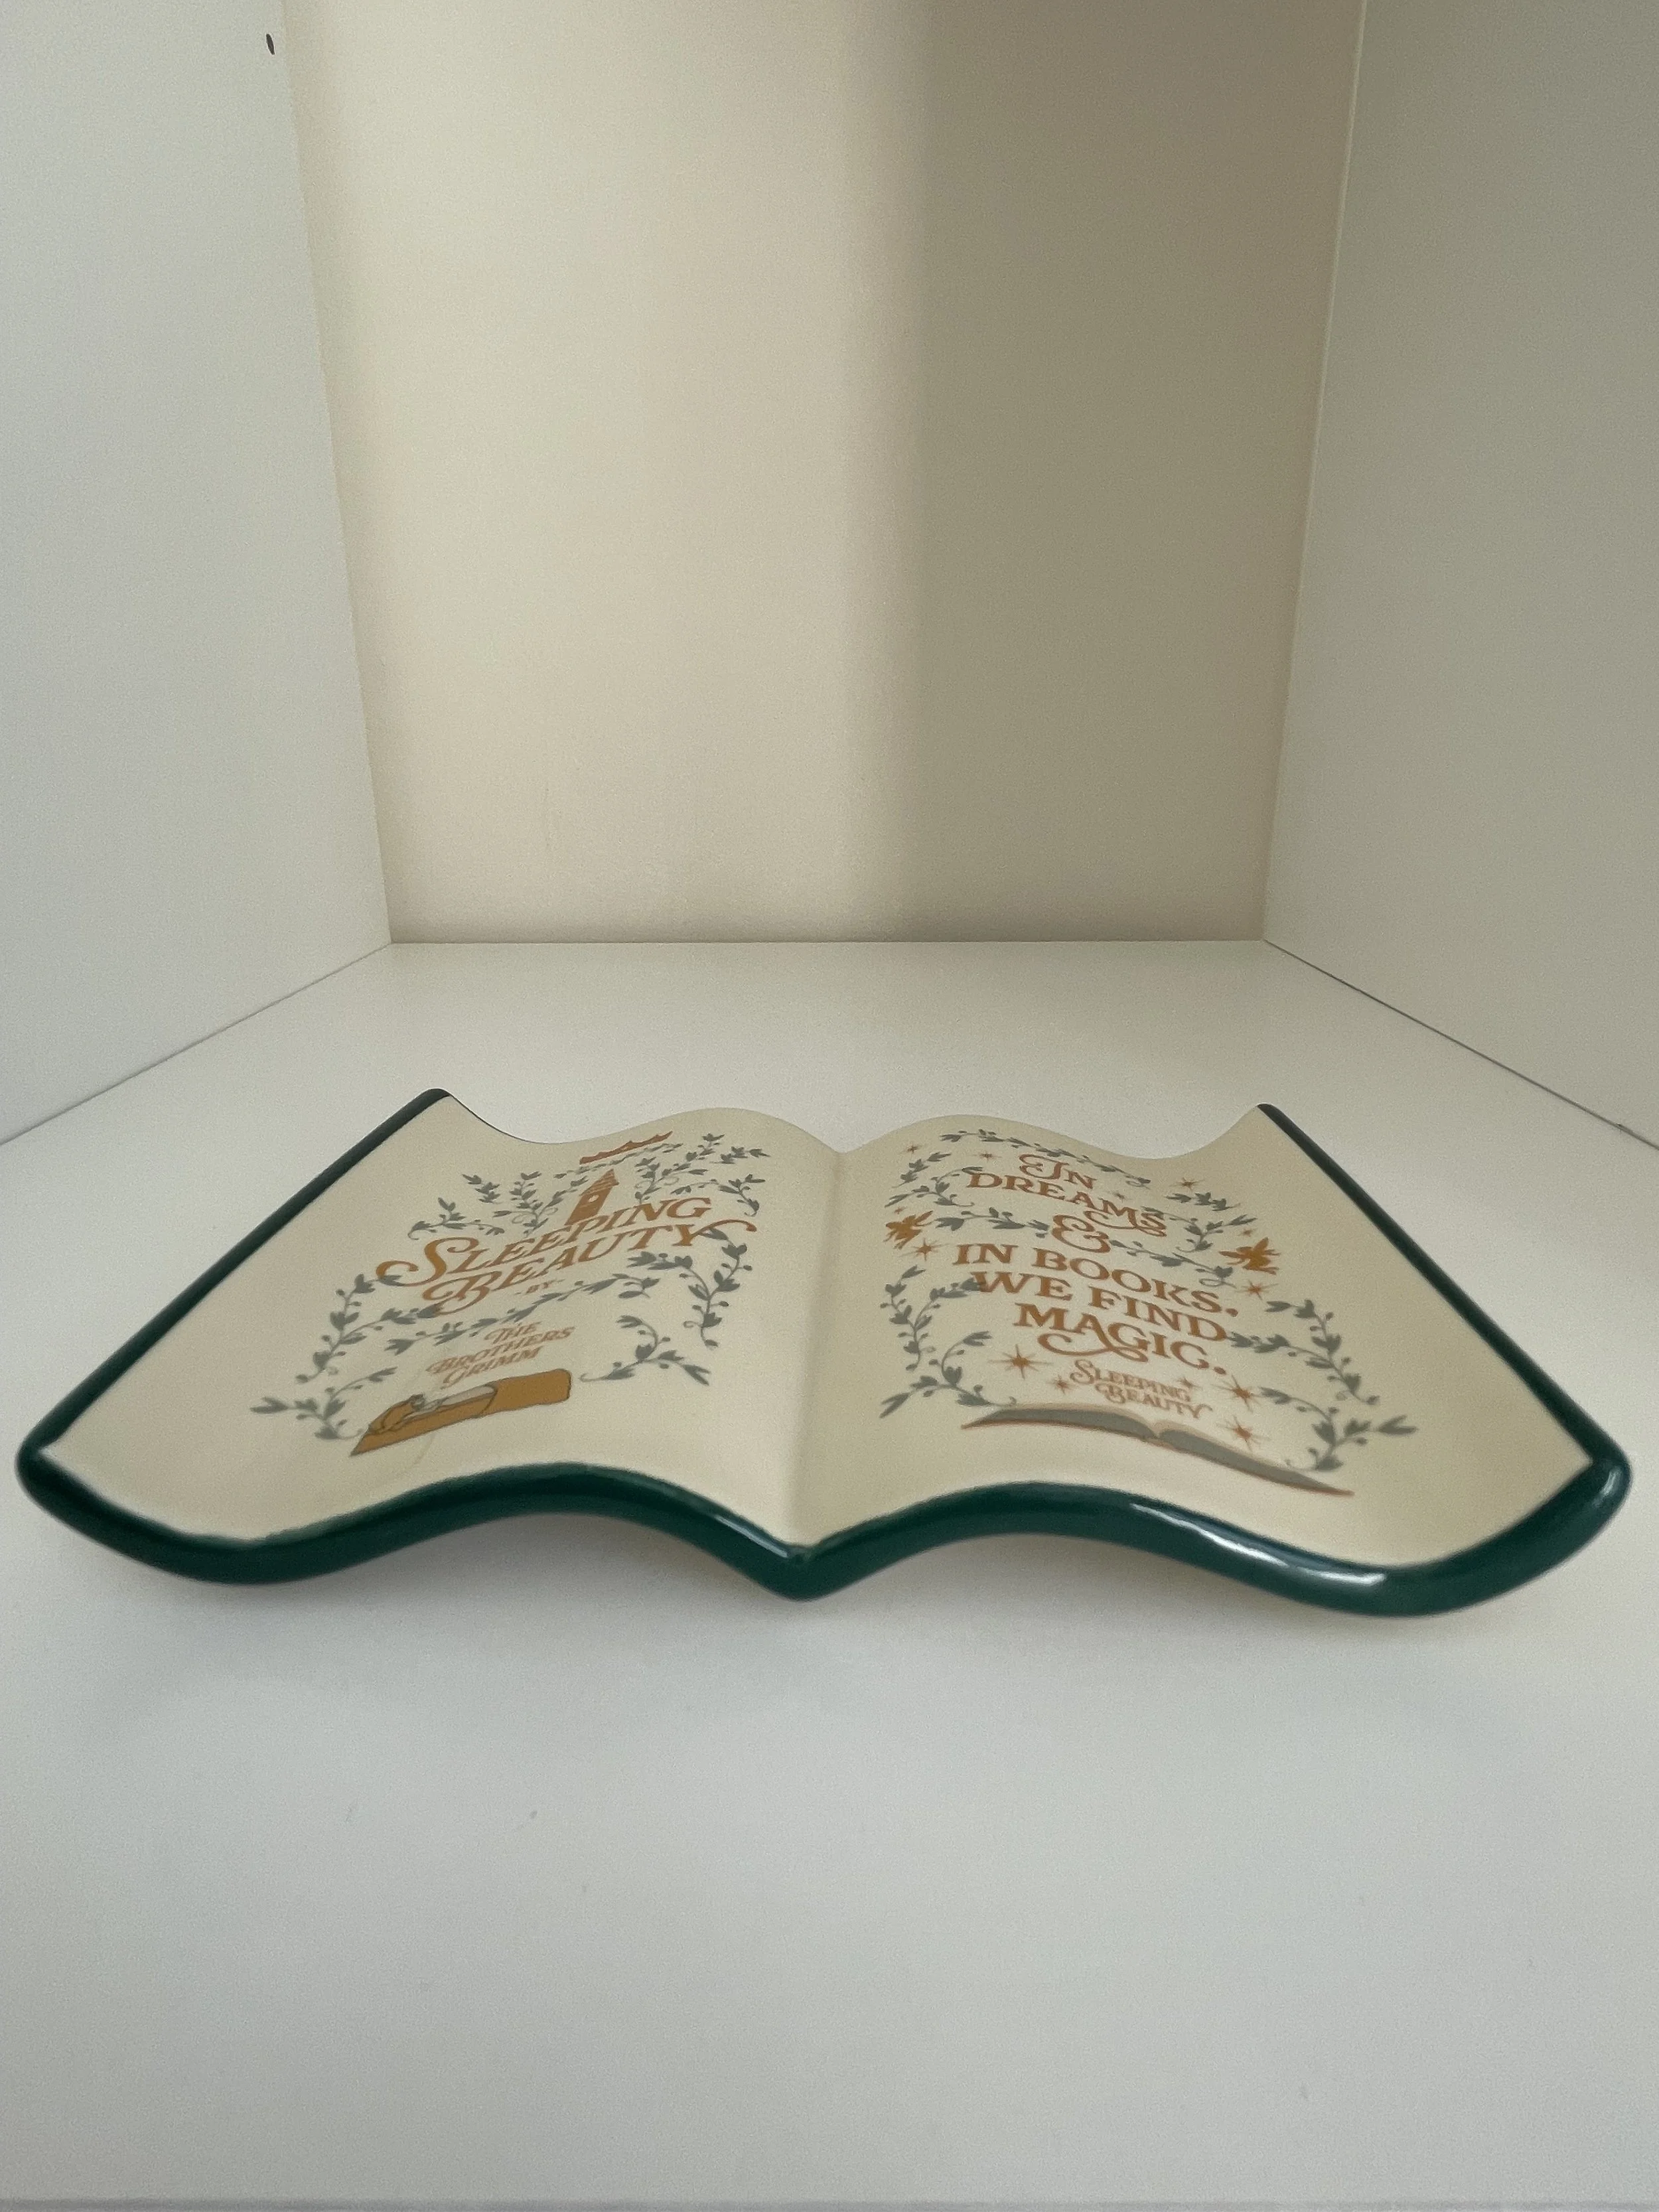 SLEEPING
BEAUTY
-BY-
THE
BROTHERS
GRIMM
IN
DREAMS
&
IN BOOKS,
WE FIND
MAGIC.
SLEEPING
BEAUTY